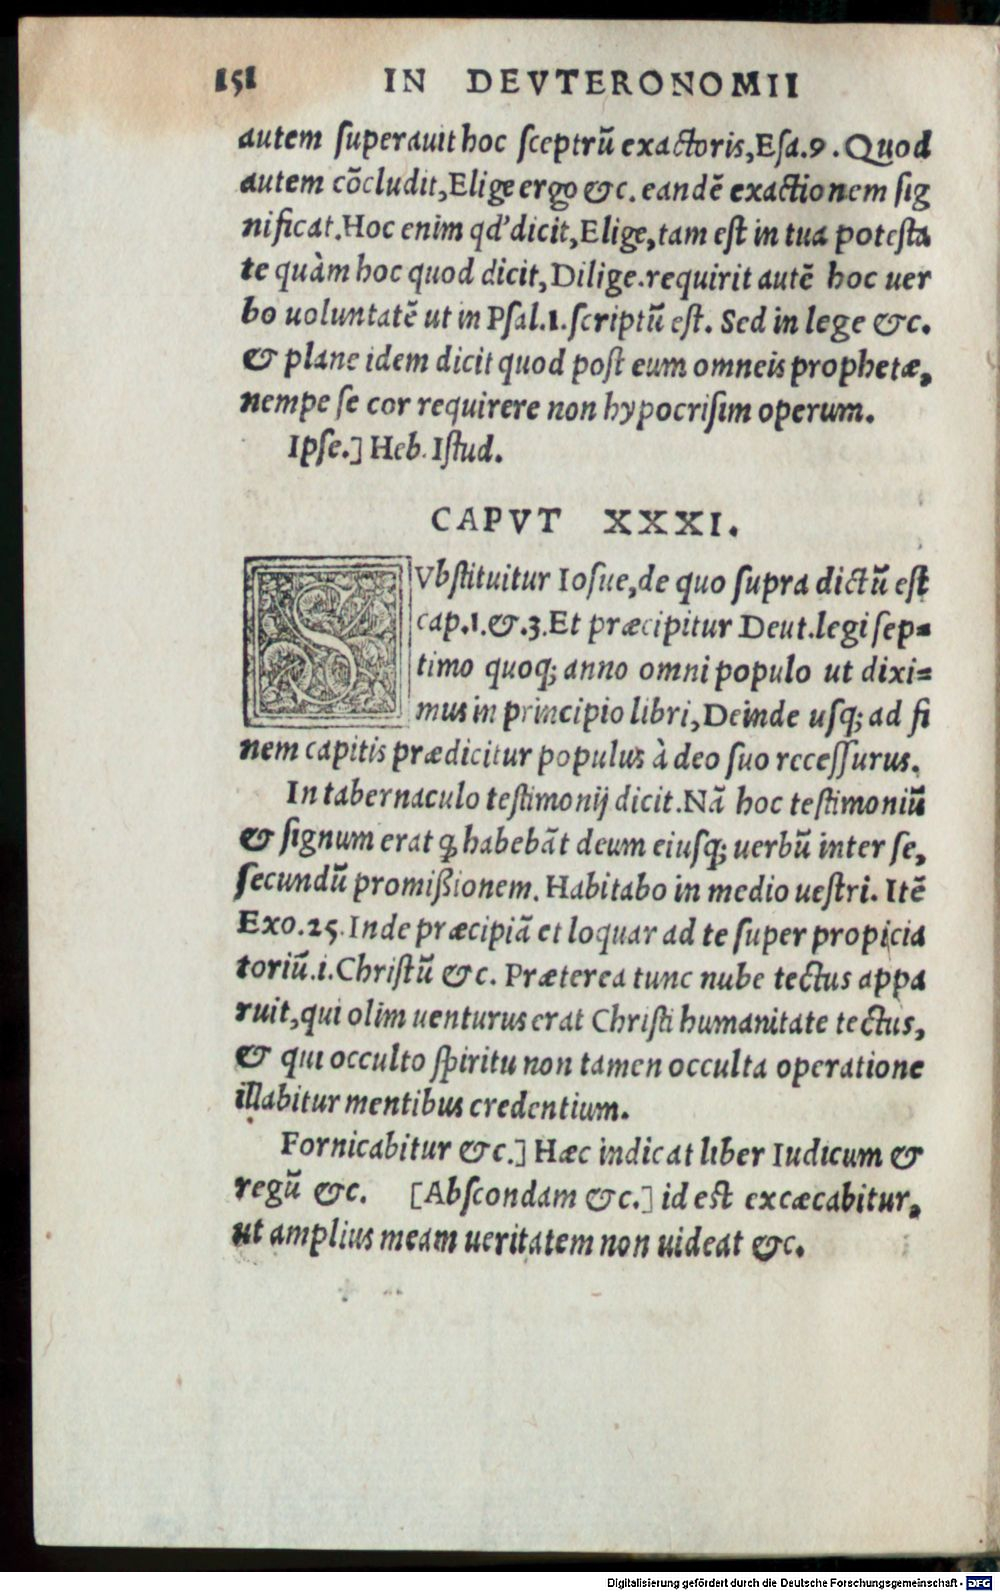 151 IN DEVTERONOMII
autem ſuperauit hoc ſceptrū exactoris, Eſa.9. Quod
autem cōcludit, Elige ergo &c. eandē exactionem ſig
nificat. Hoc enim qd' dicit, Elige, tam eſt in tua poteſta
te quàm hoc quod dicit, Dilige. requirit autē hoc uer
bo uoluntatē ut in Pſal.1. ſcriptū eſt. Sed in lege &c.
& plane idem dicit quod poſt eum omneis prophetæ,
nempe ſe cor requirere non hypocriſim operum.
Ipſe.] Heb. Iſtud.
CAPVT XXXI.
SVbſtituitur Ioſue, de quo ſupra dictū eſt
cap.1.&.3. Et præcipitur Deut. legi ſep=
timo quoq; anno omni populo ut dixi=
mus in principio libri, Deinde uſq; ad fi
nem capitis prædicitur populus à deo ſuo receſſurus.
In tabernaculo teſtimonij dicit. Nā hoc teſtimoniū
& ſignum erat ꝙ habebāt deum eiuſq; uerbū inter ſe,
ſecundū promißionem. Habitabo in medio ueſtri. Itē
Exo.25. Inde præcipiā et loquar ad te ſuper propicia
toriū.i. Chriſtū &c. Præterea tunc nube tectus appa
ruit, qui olim uenturus erat Chriſti humanitate tectus,
& qui occulto ſpiritu non tamen occulta operatione
illabitur mentibus credentium.
Fornicabitur &c.] Hæc indicat liber Iudicum &
regū &c. [Abſcondam &c.] id eſt excæcabitur,
ut amplius meam ueritatem non uideat &c.
Digitalisierung gefördert durch die Deutsche Forschungsgemeinschaft - DFG